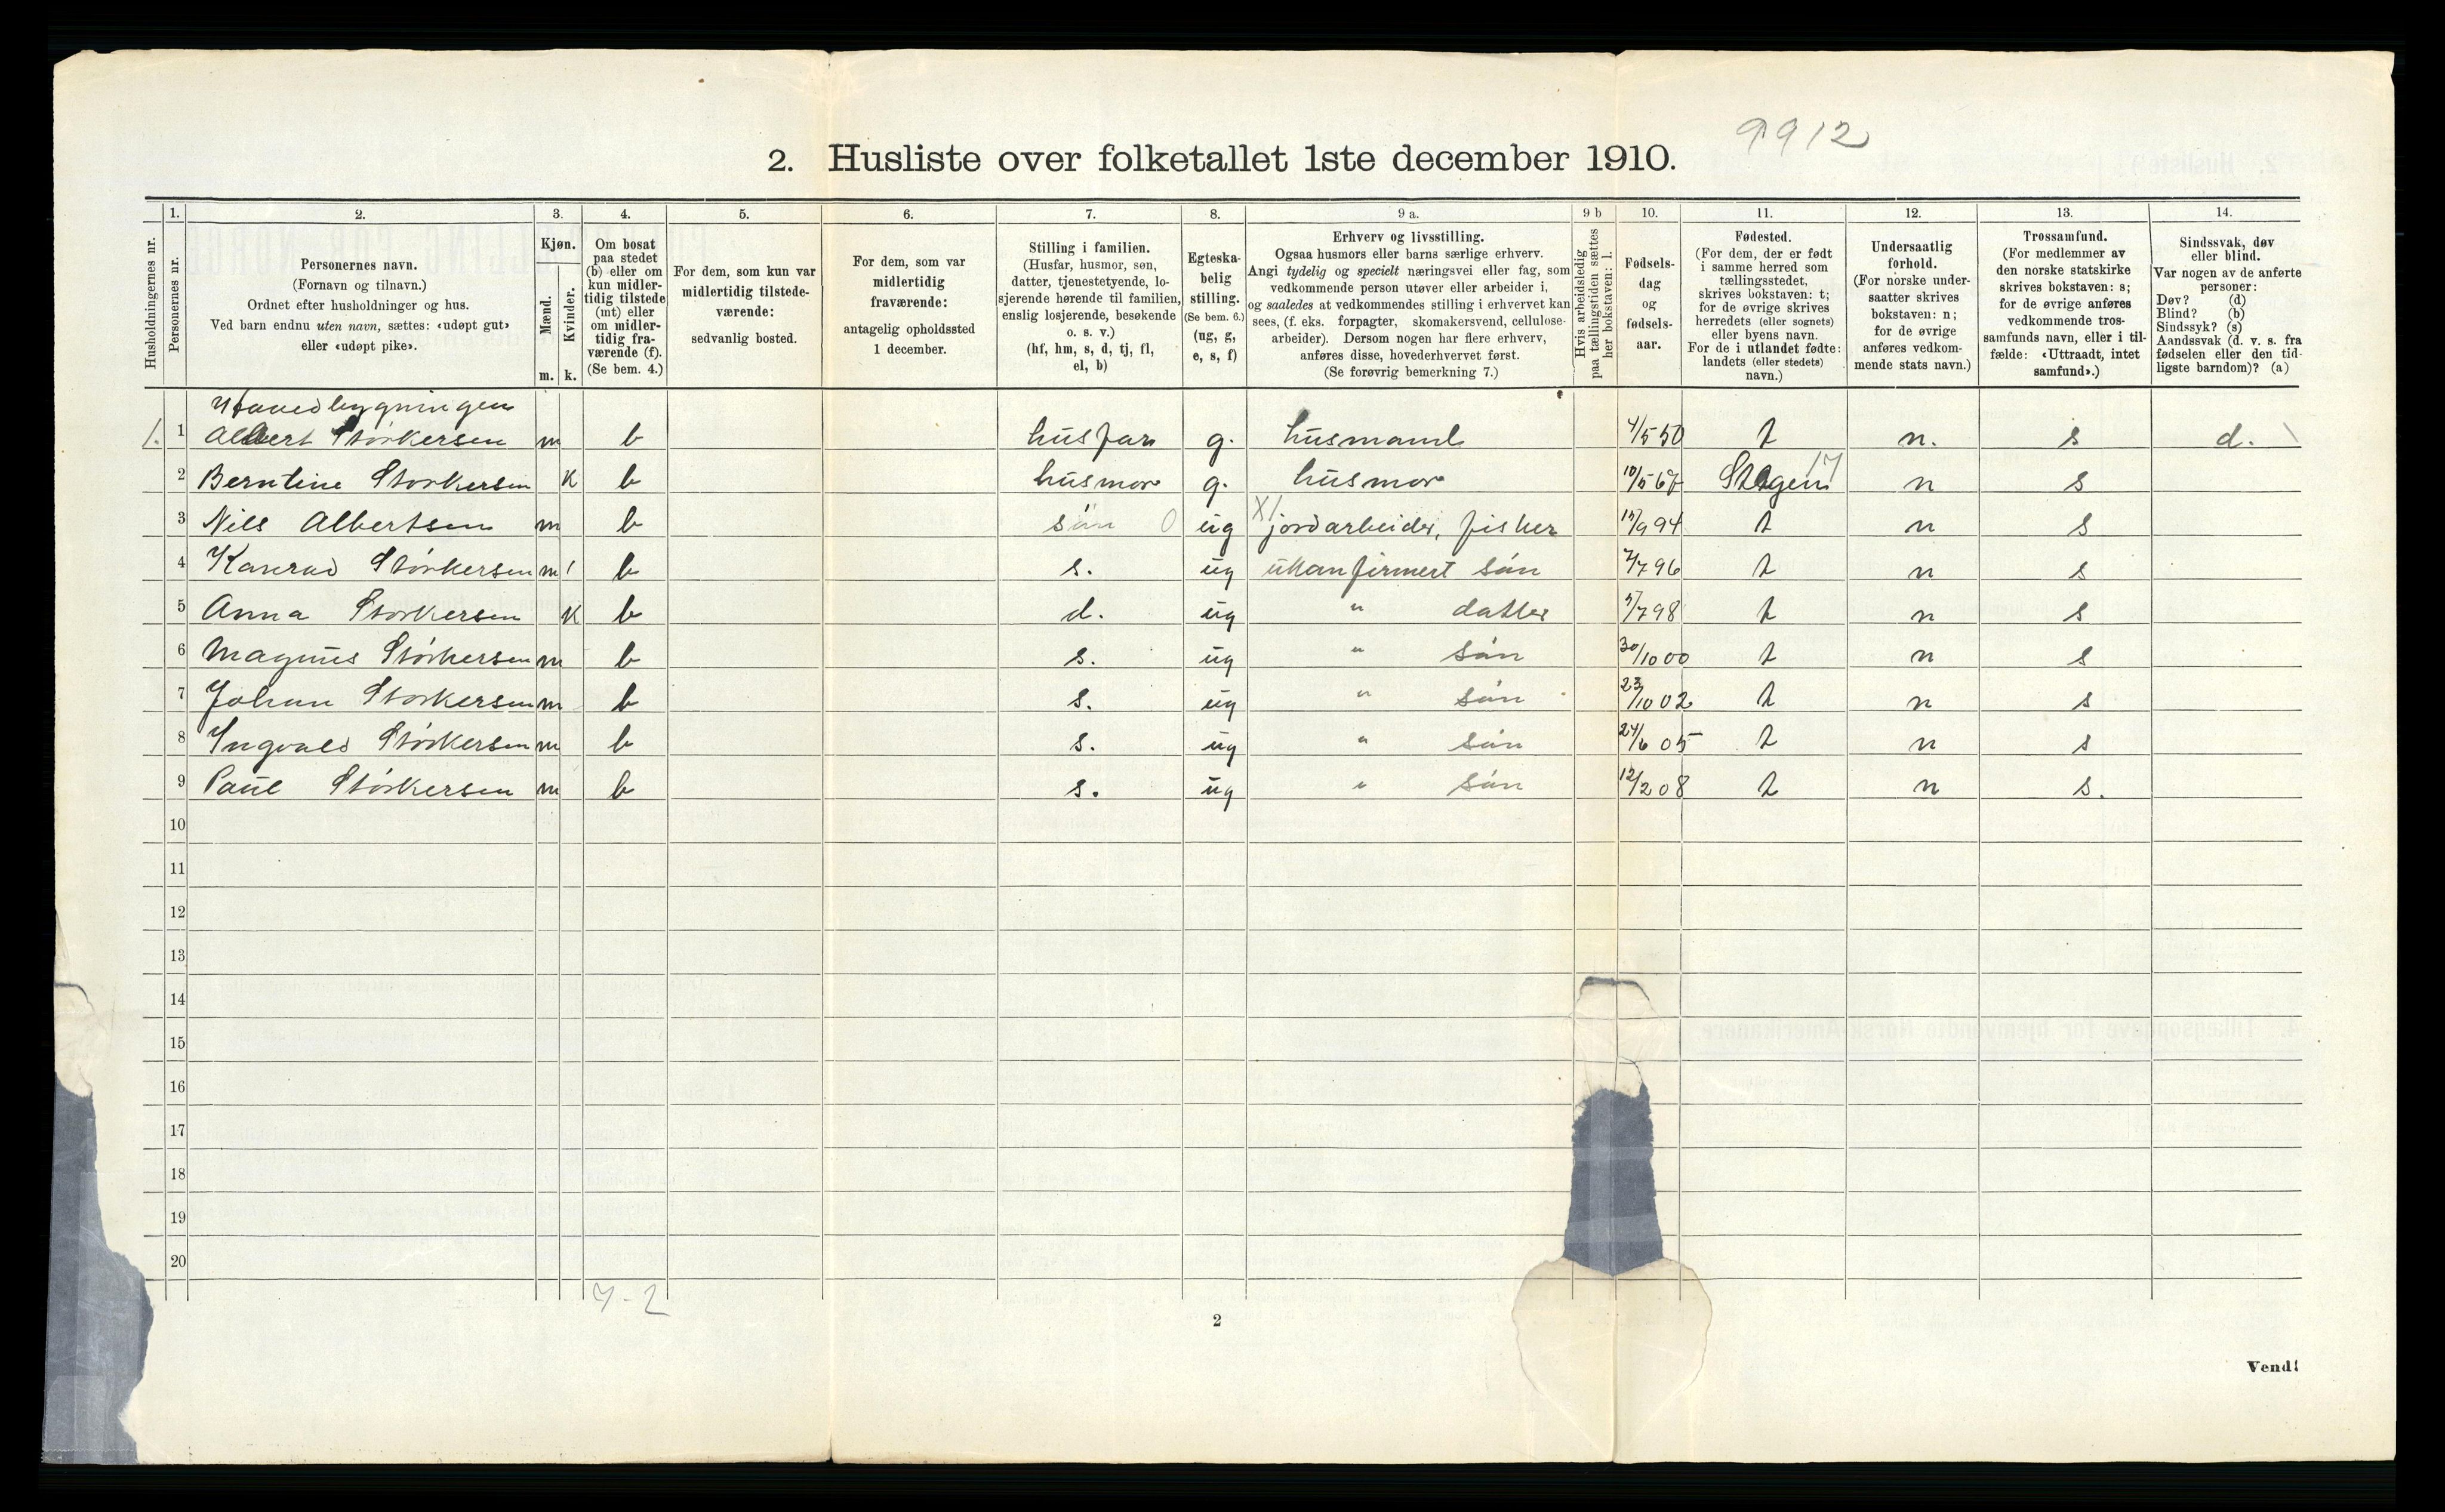 9912
2. Husliste over folketallet 1ste december 1910.
Husholdningernes nr.
1.
Personernes nr.
2.
Personernes navn.
(Fornavn og tilnavn.)
Ordnet efter husholdninger og hus.
Ved barn endnu uten navn, sættes: «udøpt gut»
eller «udøpt pike».
3.
Kjøn.
Mænd.
Kvinder.
m. k.
4.
Om bosat
paa stedet
(b) eller om
kun midler-
tidig tilstede
(mt) eller
om midler-
tidig fra-
værende (f).
(Se bem. 4.)
5.
For dem, som kun var
midlertidig tilstede-
værende:
sedvanlig bosted.
6.
For dem, som var
midlertidig
fraværende:
antagelig opholdssted
1 december.
7.
Stilling i familien.
(Husfar, husmor, søn,
datter, tjenestetyende, lo-
sjerende hørende til familien,
enslig losjerende, besøkende
o. s. v.)
(hf, hm, s, d, tj, fl,
el, b)
8.
Egteska-
belig
stilling.
(Se bem. 6.)
(ug, g,
e, s, f)
9 a.
Erhverv og livsstilling.
Ogsaa husmors eller barns særlige erhverv.
Angi tydelig og specielt næringsvei eller fag, som
vedkommende person utøver eller arbeider i,
og saaledes at vedkommendes stilling i erhvervet kan
sees, (f. eks. forpagter, skomakersvend, cellulose-
arbeider). Dersom nogen har flere erhverv,
anføres disse, hovederhvervet først.
(Se forøvrig bemerkning 7.)
9 b
Hvis arbeidsledig
paa tællingstiden sættes
her bokstaven: l.
10.
Fødsels-
dag
og
fødsels-
aar.
11.
Fødested.
(For dem, der er født
i samme herred som
tællingsstedet,
skrives bokstaven: t;
for de øvrige skrives
herredets (eller sognets)
eller byens navn.
For de i utlandet fødte:
landets (eller stedets)
navn.)
12.
Undersaatlig
forhold.
(For norske under-
saatter skrives
bokstaven: n;
for de øvrige
anføres vedkom-
mende stats navn.)
13.
Trossamfund.
(For medlemmer av
den norske statskirke
skrives bokstaven: s;
for de øvrige anføres
vedkommende tros-
samfunds navn, eller i til-
fælde: «Uttraadt, intet
samfund».)
14.
Sindssvak, døv
eller blind.
Var nogen av de anførte
personer:
Døv? (d)
Blind? (b)
Sindssyk? (s)
Aandssvak (d. v. s. fra
fødselen eller den tid-
ligste barndom)? (a)
Hovedbygningen
1. 1 Albert Størkersen m b husfar g. husmand 4/5 50 t n. s d.
2 Berntine Størkersen k b husmor g. husmor 10/5 67 17 n s
3 Nils Albertsen m b sön 0 ug X1 jordarbeider, fisker 15/9 94 t n s
4 Konrad Størkersen m b s. ug ukonfirmert sön 7/7 96 t n s
5 Anna Størkersen k b d. ug " datter 5/7 98 t n s
6 Magnus Størkersen m b s. ug " sön 30/10 00 t n s
7 Johan Størkersen m b s. ug " sön 23/10 02 t n s
8 Yngvald Størkersen m b s. ug " sön 24/6 05 t n s
9 Paul Størkersen m b s. ug " sön 12/2 08 t n s.
10
11
12
13
14
15
16
17
18
19
20
7-2
2
Vend!